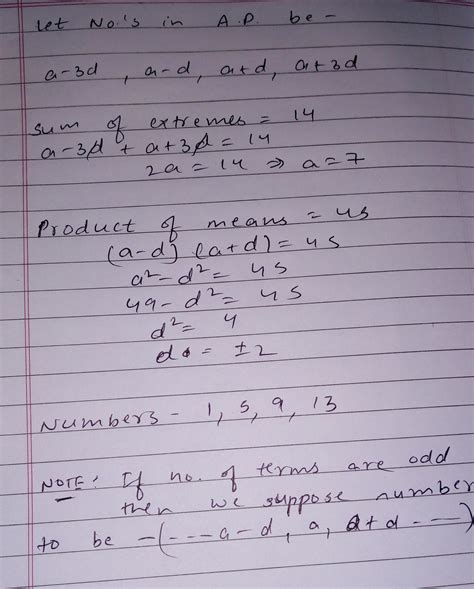 Let No.'s in A.P. be -
a-3d, a-d, a+d, a+3d
Sum of extremes = 14
a-3d + a+3d = 14
2a = 14 ⇒ a = 7
Product of means = 45
(a-d) (a+d) = 45
a²-d² = 45
49-d² = 45
d² = 4
d = ±2
Numbers - 1, 5, 9, 13
NOTE: If no. of terms are odd
then we suppose number
to be -(---a-d, a, a+d ---)